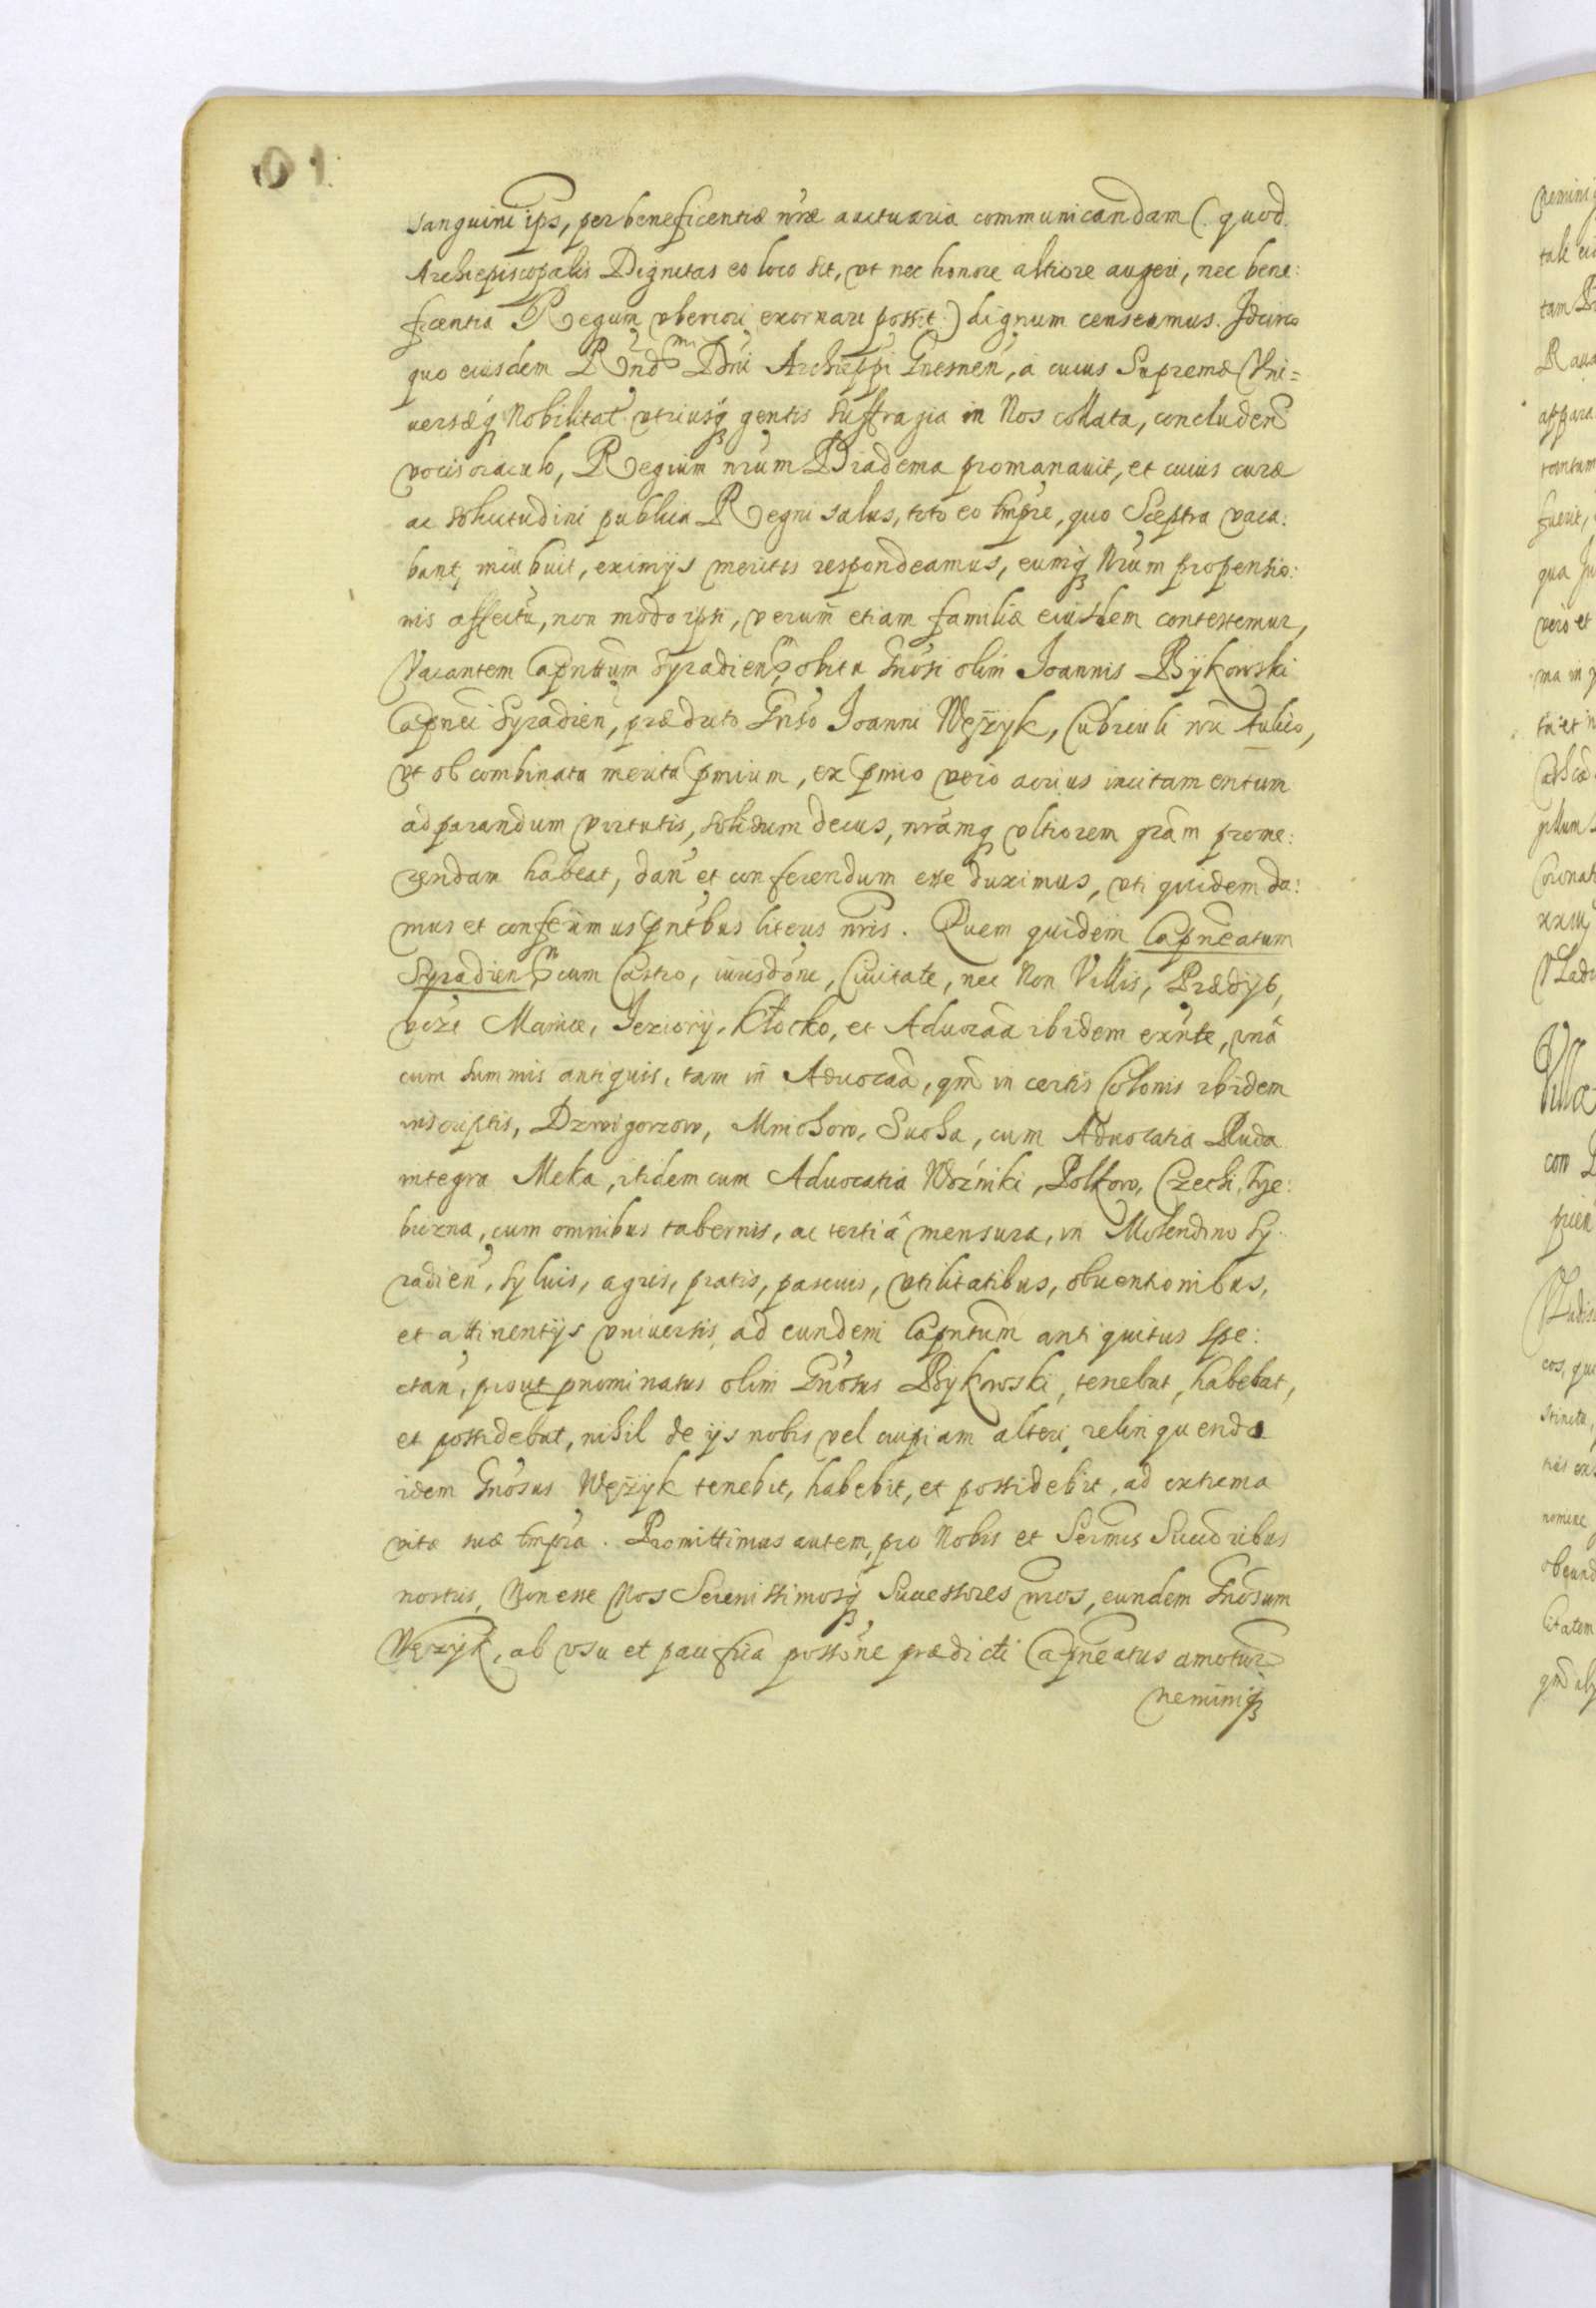 01.
sanguini ips, per beneficentiæ nr̃æ auctuaria communicandam (. quod
Archiepiscopalis Dignitas eo loco sit, vt nec honore altiore augeri, nec bene:
ficentia Regum vberiori exornari possit.) dignum censeamus. Idcirco
quo eiusdem Rñdmi Dñi Archieppi Gnesneñ, à cuius Supremæ Vni=
uersæq̃ Nobilitat vtriusq̃ gentis suffragia in Nos collata, concludeñ
vocis oraculo, Regium nr̃um Diadema promanauit, et cuius curæ
ac solicitudini publica Regni salus, toto eo tmp̃re, quo Sceptra vaca:
bant, incubuit, eximijs meritis respondeamus, eumq̃ Nr̃um propensio:
nis affectũ, non modo ipsi, verum̃ etiam familiæ eiusdem contestemur,
Vacantem Capnttum Syradien, obitu Gnõsi olim Joannis Bykowski
Capnei Syradieñ, prædicto Gnsõ Joanni Wężyk, Cubiculi nr̃i Aulico,
vt ob combinata merita p̃mium, ex p̃mio vero acrius incitamentum
ad parandum virtutis, solidum decus, nr̃amq̃ vltiorem gr̃am prome:
rendam habeat, dan̄ et conferendum esse duximus, vti quidem da:
mus et conferimus p̃ntbus literis nr̃is. Quem quidem Capñeatum
Syradien cum Castro, iurisdõne, Ciuitate, nec Non Villis, Prædijs,
vcẑt Manice, Jeziory, Kłocko, et Aduocãa ibidem exñte, vnâ
cum summis antiquis, tam in Aduocãa, qm̃ in certis Colonis ibidem
inscriptis, Dzwigorzow, Mnichow, Sucha, cum Aduocatia Ruda
integra Meka, itidem cum Aduocatia Wozniki, Polkow, Czechi, Trze:
biezna, cum omnibus tabernis, ac tertiâ mensura, in Molendino Sy:
radieñ, syluis, agris, pratis, pascuis, vtilitatibus, obuentionibus,
et attinentijs vniuersis, ad eundem Capntum̃ antiquitus spe:
ctañ, prout pnominatus olim Gnõsus Bykowski, tenebat, habebat,
et possidebat, nihil de ijs nobis vel cuipiam alteri, relinquendo
idem Gnõsus Wężyk tenebit, habebit, et possidebit, ad extrema
vitæ suæ tmp̃ra. Promittimus autem, pro Nobis et Ser̃mis Succoribus
nostris, Non esse Nos Serenissimosq̃ Successores nr̃os, eundem Gnõsum
Wężyk, ab vsu et pacifica possõne prædicti Capñeatus amotur
neminiq̃